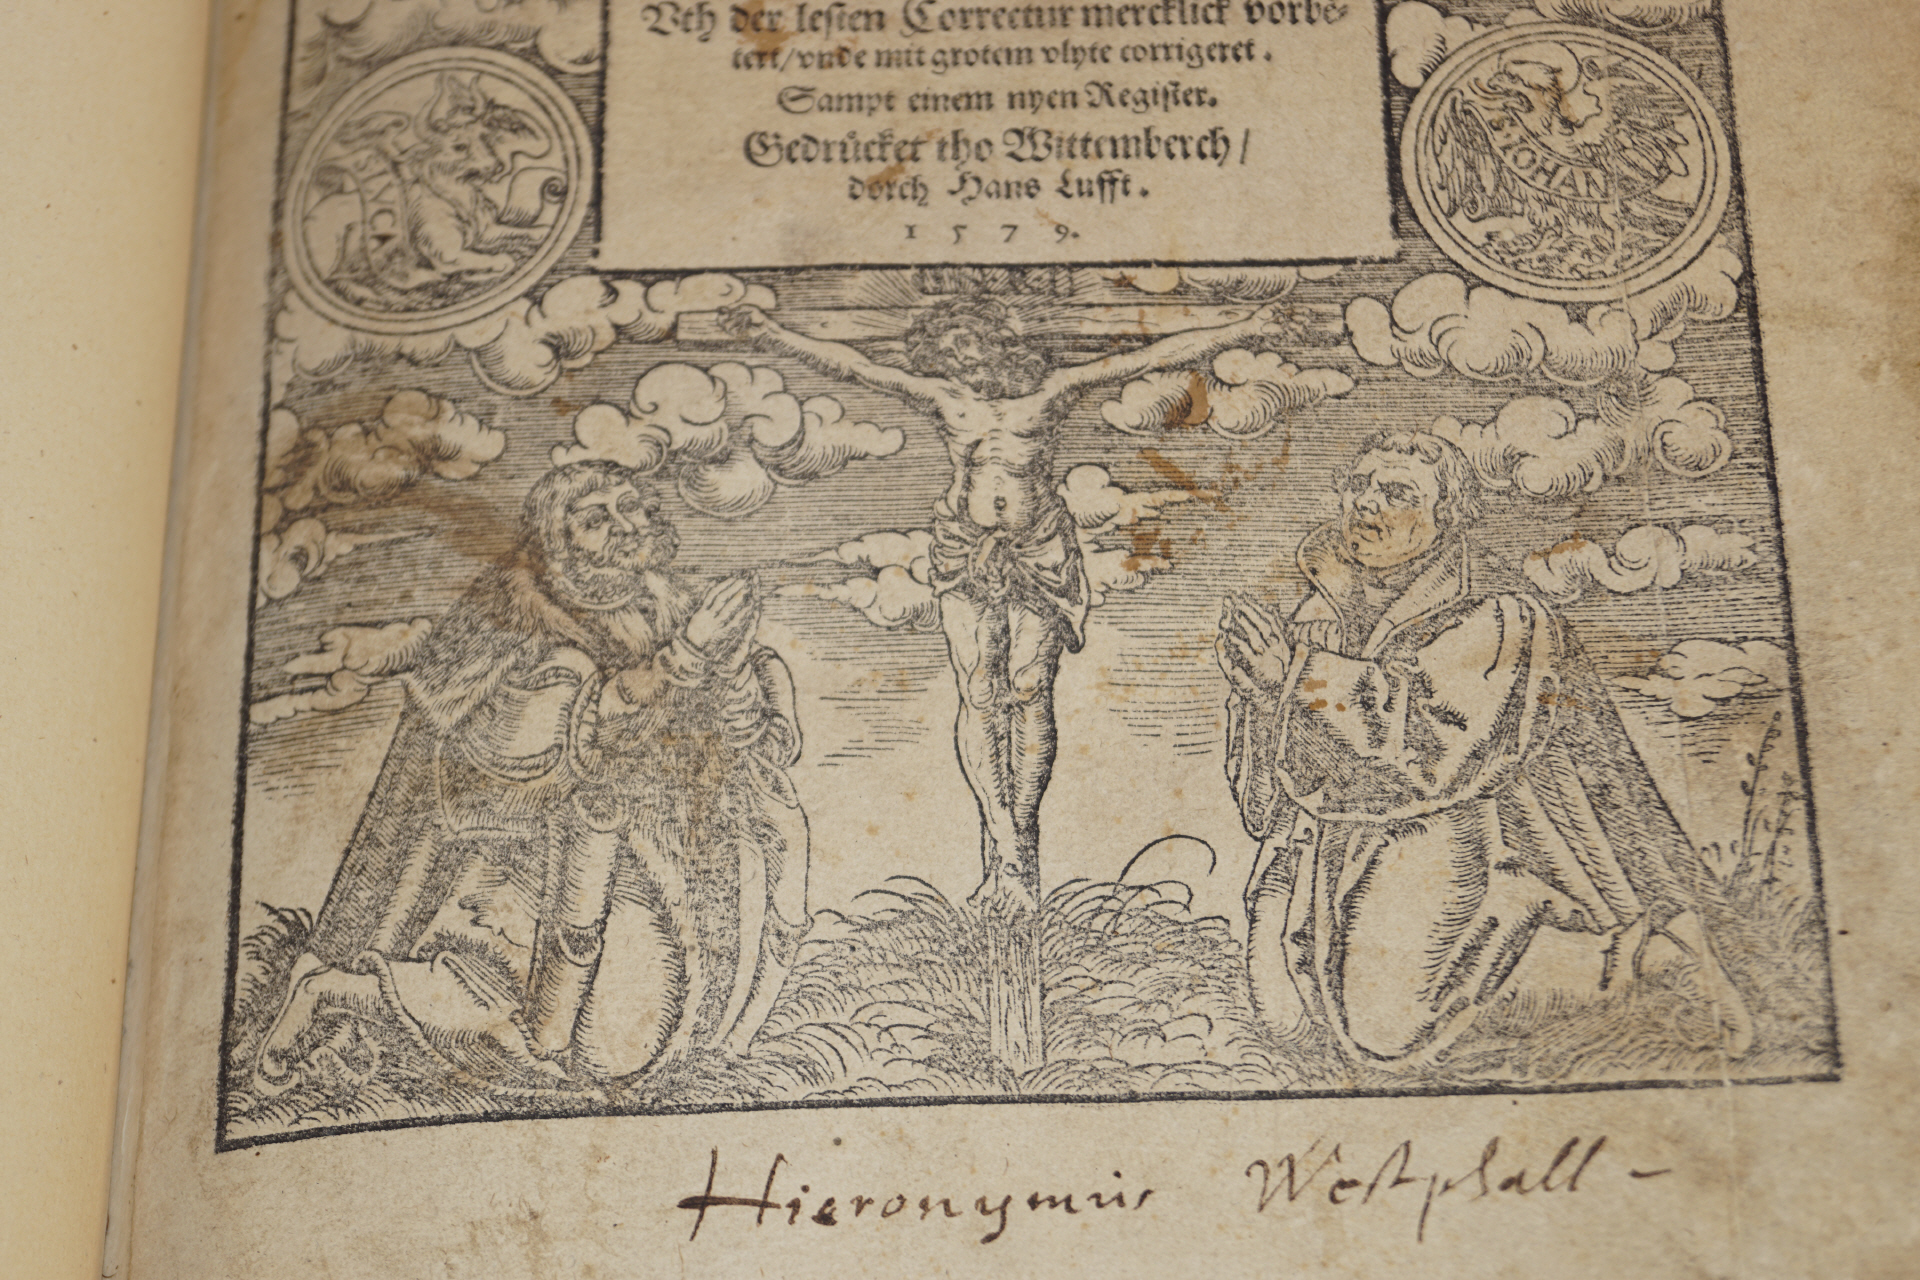 Vth der lesten Correctur mercklick vorbe-
tert/vnde mit grotem vlyte corrigeret.
Sampt einem nyen Register.
Gedrücket tho Wittemberch/
dorch Hans Lufft.
1579.
S. LVCA
S. IOHAN
Hieronymus Westphall -